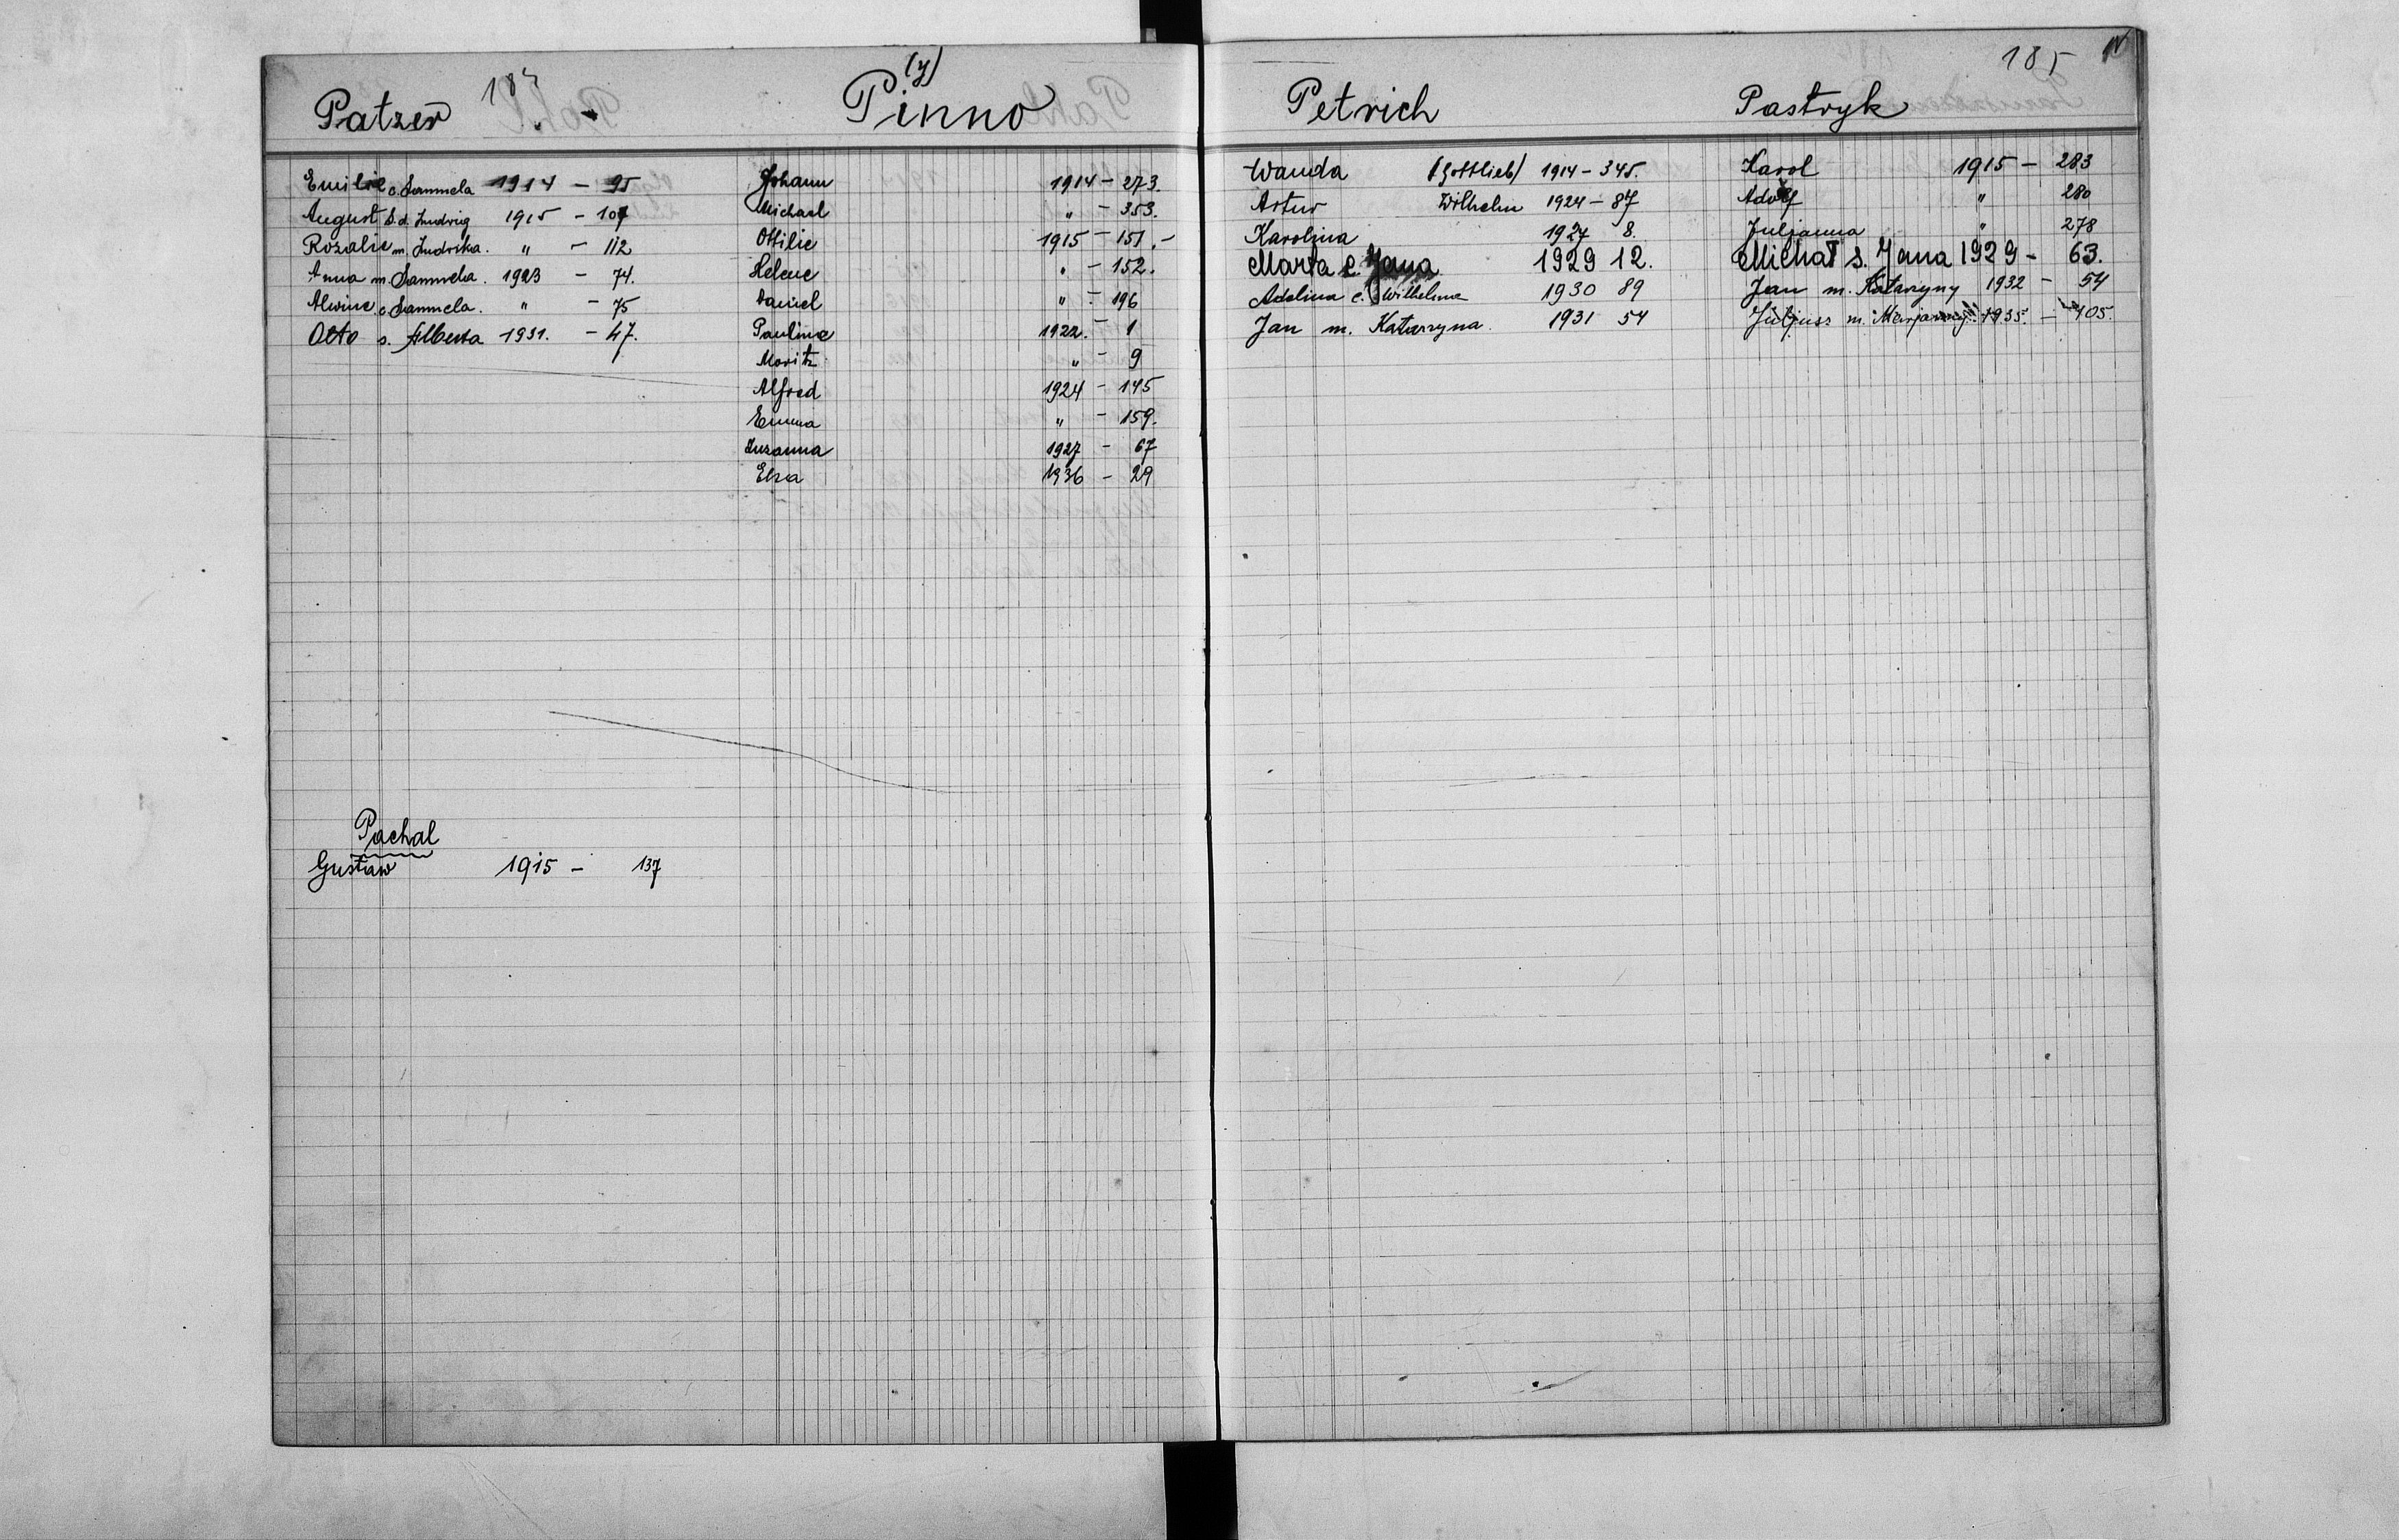 Patzer
Emilie c. Samuela 1914 – 95
August S. d. Ludwig 1915 – 107
Rozalie m. Ludwika. " – 112
Anna m. Samuela. 1923 – 74.
Alwine c. Samuela. " – 75
Otto s. Alberta 1931. – 47.
Pachal
Gustaw 1915 – 137
(y)
Pinno
Johann 1914 – 273.
Michael " – 353.
Ottilie 1915 – 151.–
Helene " – 152.
Daniel " – 196
Pauline 1922. – 1
Moritz " – 9
Alfred 1924 – 145
Emma " – 159.
Zuzanna 1927 – 67
Elza 1936 – 29
185
Petrich
Wanda (Gottlieb) 1914 – 345.
Artur Wilhelm 1924 – 87
Karolina 1927 8.
Marta c. Jana 1929 12.
Adolina c. Wilhelma 1930 89
Jan m. Katarzyna. 1931 54
Pastryk
Karol 1915 – 283
Adolf " 280
Juljanna " 278
Michał s. Jana 1929 – 63.
Jan m. Katarzyny 1932 – 54
Juljusz m. 1935. – 105.